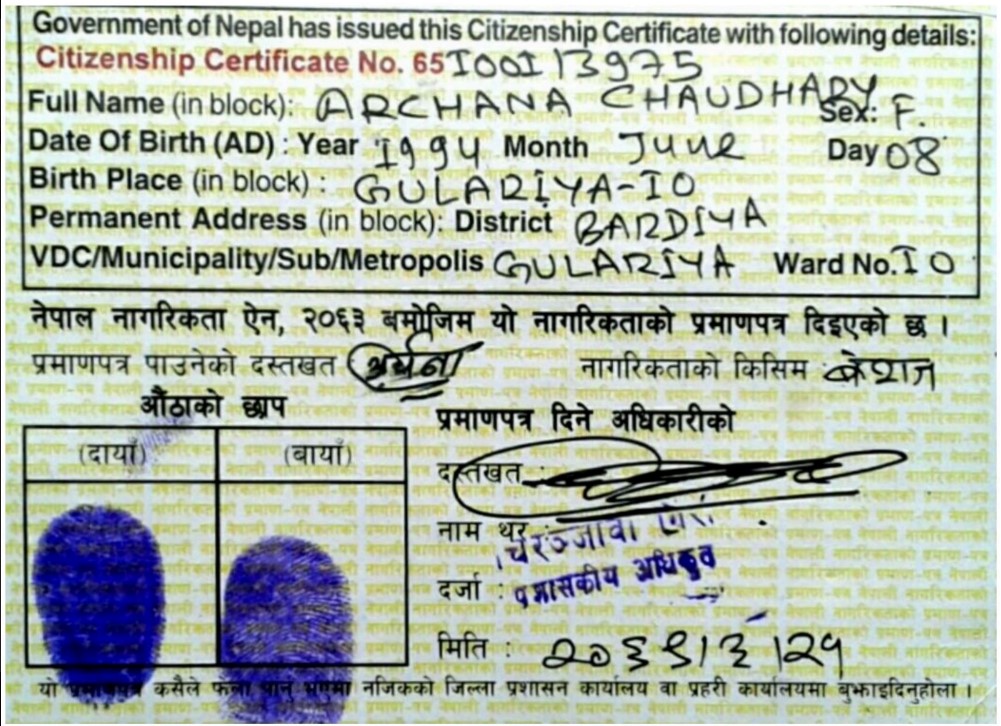 Government of Nepal has issued this Citizenship Certificate with following details:
Citizenship Certificate No. 65100113975
Full Name (in block): ARCHANA CHAUDHARY Sex: F.
Date Of Birth (AD) : Year 1994 Month June Day 08
Birth Place (in block) : GULARIYA-10
Permanent Address (in block): District BARDIYA
VDC/Municipality/Sub/Metropolis GULARIYA Ward No. 10
नेपाल नागरिकता ऐन, २०६३ बमोजिम यो नागरिकताको प्रमाणपत्र दिइएको छ ।
प्रमाणपत्र पाउनेको दस्तखत अर्चना नागरिकताको किसिम बंशज
औंठाको छाप
प्रमाणपत्र दिने अधिकारीको
(दायाँ) (बायाँ)
दस्तखत :
नाम थर :
दर्जा : प्रशासकीय अधिकृत
मिति :
यो प्रमाणपत्र कसैले फेला पारेमा नजिकको जिल्ला प्रशासन कार्यालय वा प्रहरी कार्यालयमा बुझाइदिनुहोला ।